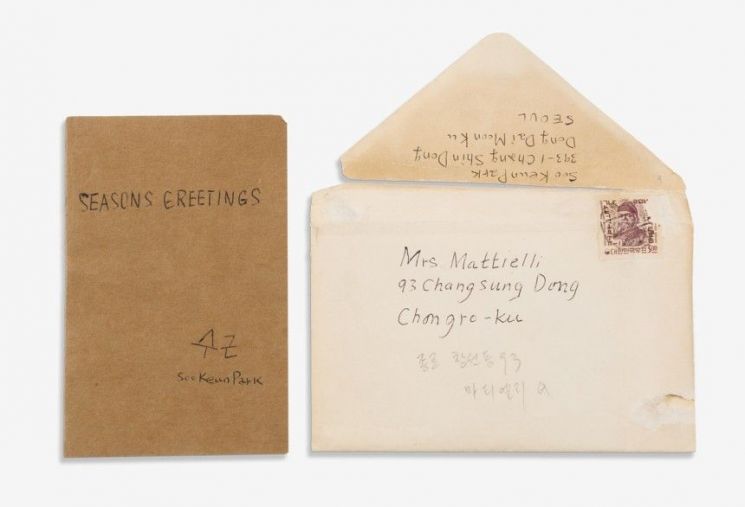 SEASONS GREETINGS
수근
SooKeunPark
SooKeunPark
393-1 Chang Shin Dong
Dong Dai Moon Ku
SEOUL
대한민국우표
Mrs Mattielli
93 Changsung Dong
Chongro-ku
종로 창선동 93
마티엘리